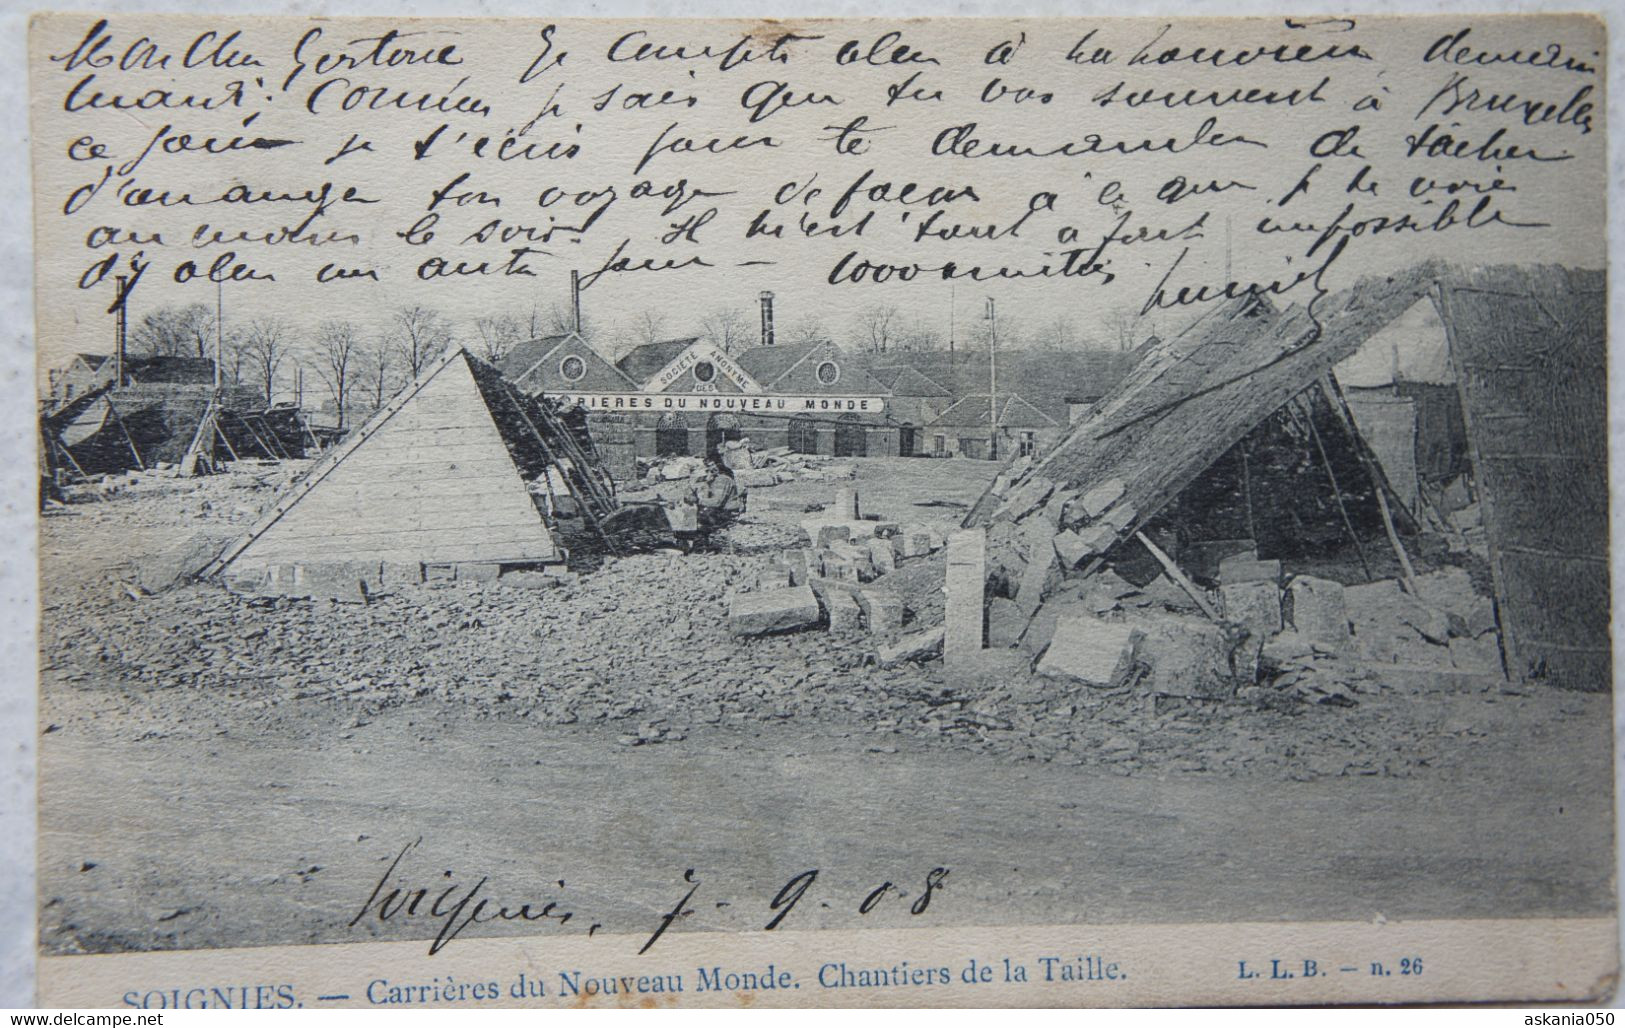 Mon Cher Je compte aller à La Louvière, demain
mardi. Comme je sais que tu vas souvent à Bruxelles
ce jour je t'écris pour te demander de tâcher
d'arranger ton voyage de façon à ce que je te voie
au moins le soir. Il m'est tout à fait impossible
d'y aller un autre jour — 1000 amitiés
SOCIÉTÉ ANONYME
DES
RIERES DU NOUVEAU MONDE
Soignies, 7-9-08
SOIGNIES. — Carrières du Nouveau Monde. Chantiers de la Taille. L. L. B. — n. 26
delcampe.net
askania050